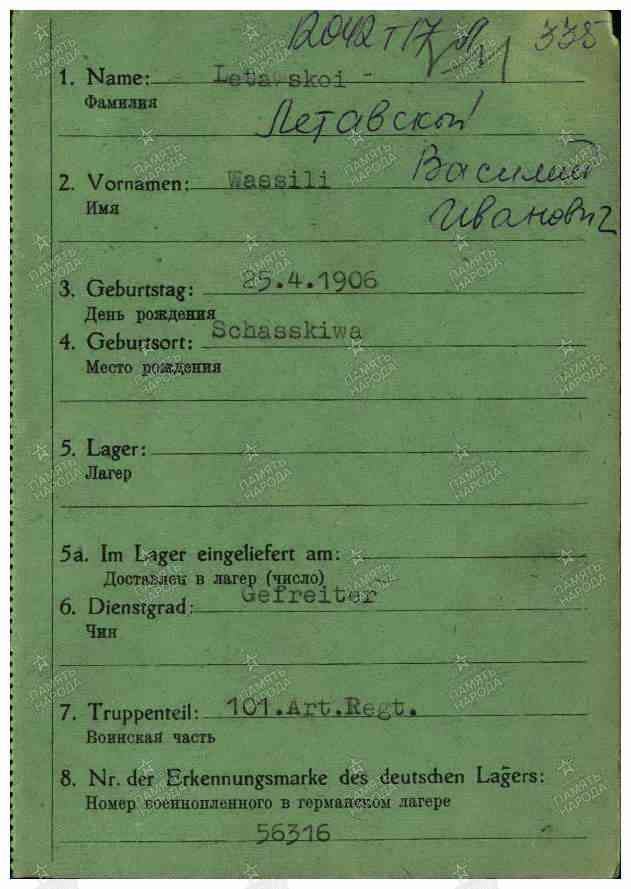 12042 т 17 335
1. Name: Letawskoi -
Фамилия
Летавской
Василий
2. Vornamen: Wassili
Имя
Иванович
3. Geburtstag: 25.4.1906
День рождения
4. Geburtsort: Schasskiwa
Место рождения
5. Lager:
Лагер
5a. Im Lager eingeliefert am:
Доставлен в лагер (число)
6. Dienstgrad: Gefreiter
Чин
7. Truppenteil: 101.Art.Regt.
Воинская часть
8. Nr. der Erkennungsmarke des deutschen Lagers:
Номер военнопленного в германском лагере
56316
ПАМЯТЬ
НАРОДА